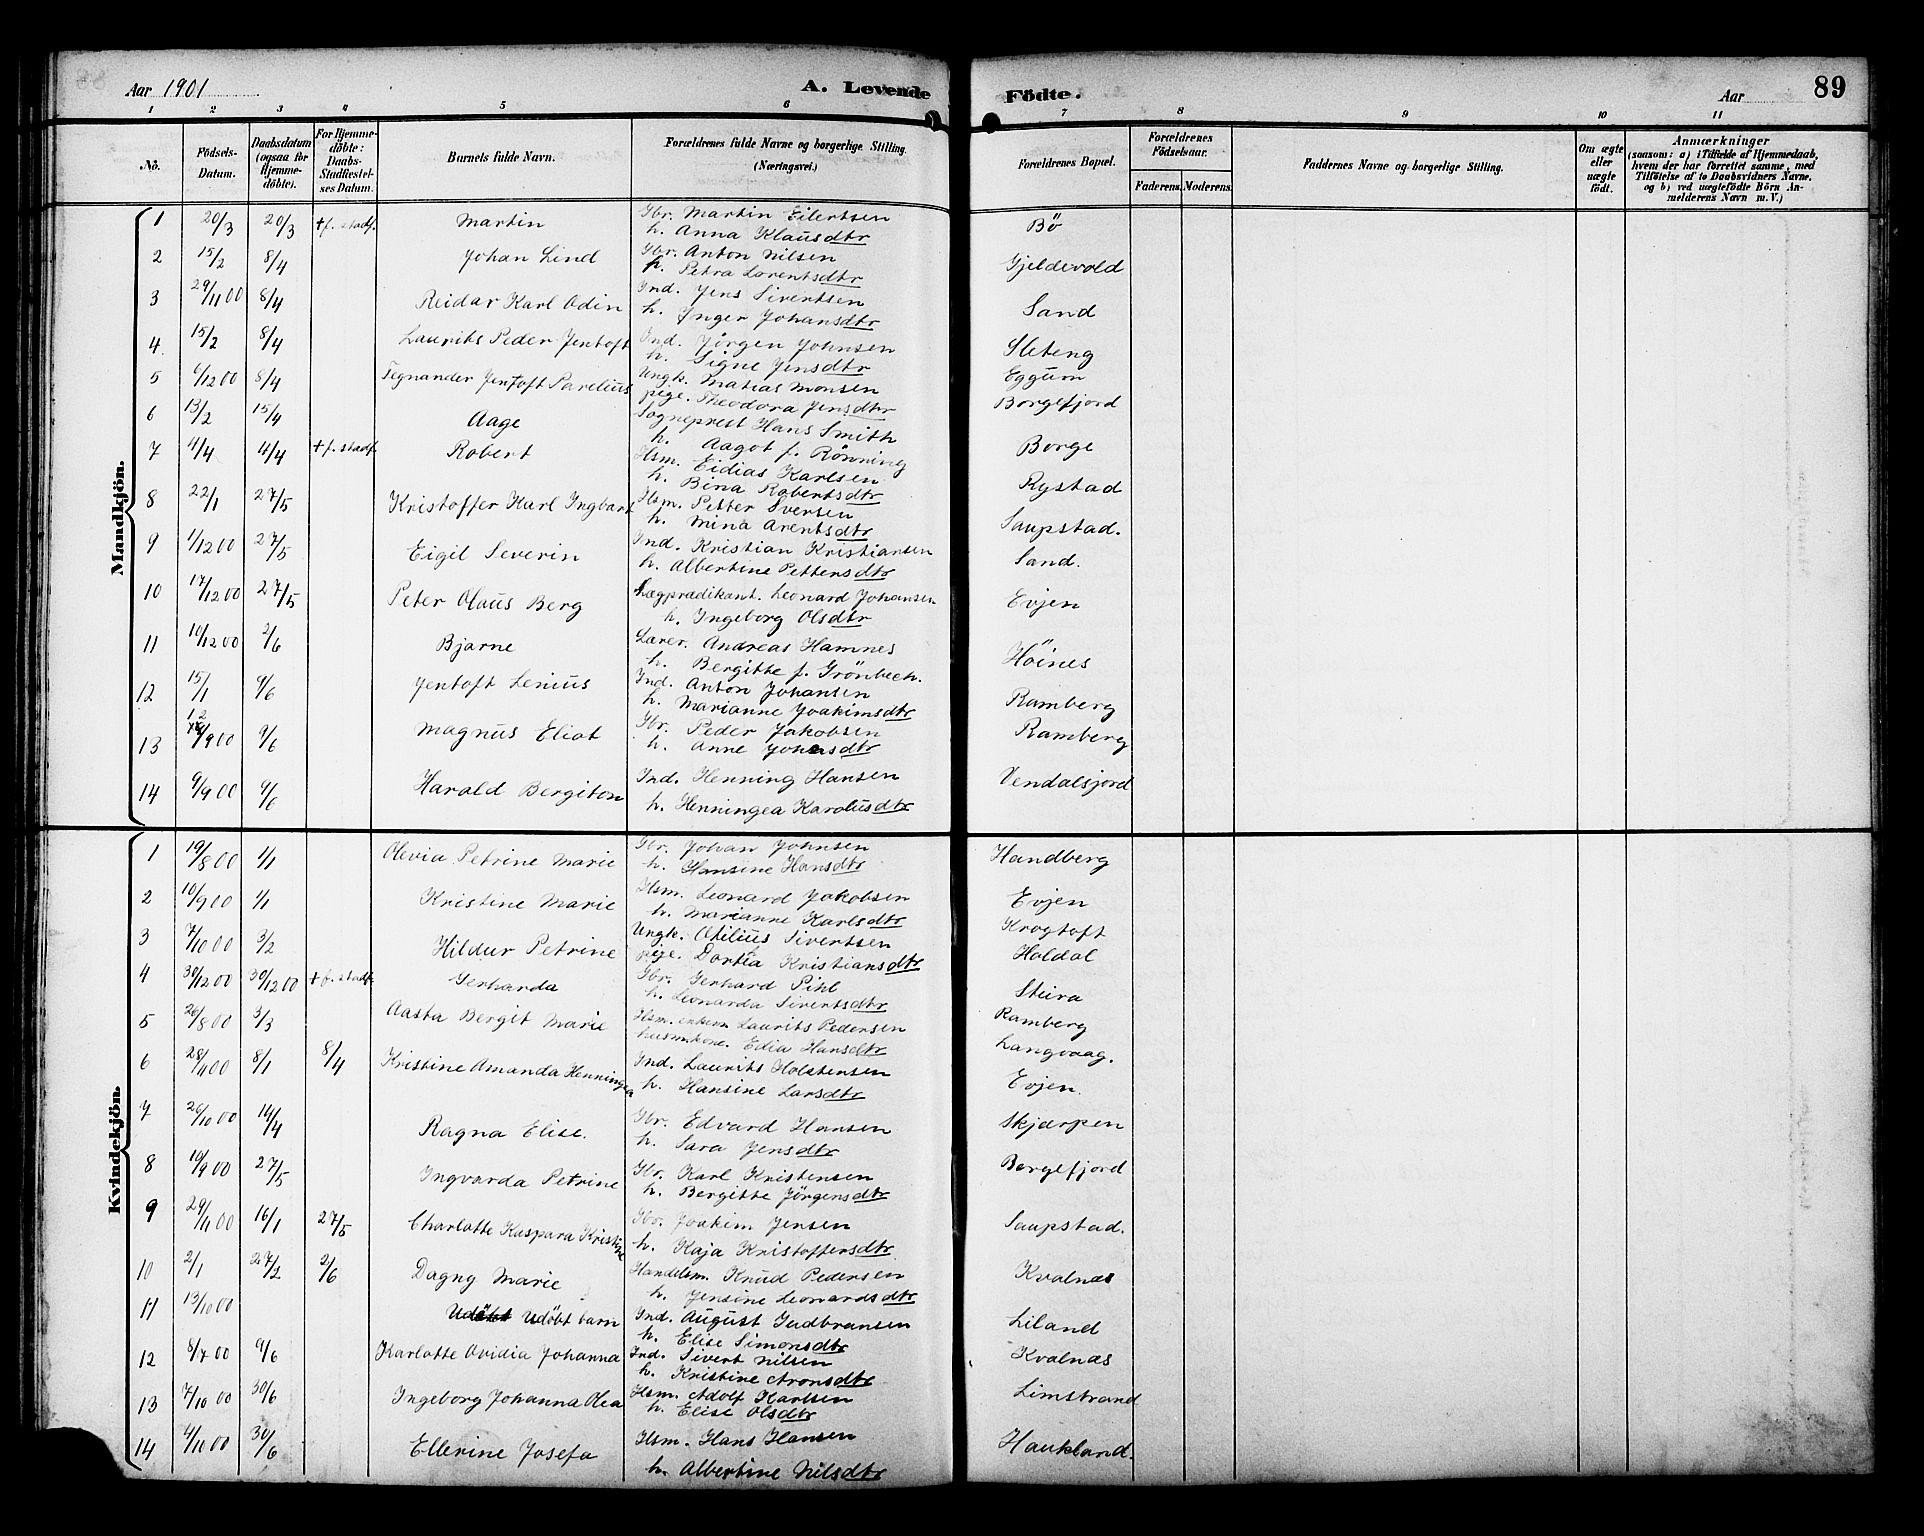 Aar 1901 A. Levende Födte. Aar 89
1 2 3 4 5 6 7 8 9 10 11
No.
Födsels-Datum.
Daabsdatum (ogsaa for Hjemme-döbte).
For Hjemme-döbte: Daabs-Stadfæstel-ses Datum.
Barnets fulde Navn.
Forældrenes fulde Navne og borgerlige Stilling. (Næringsvei.)
Forældrenes Bopæl.
Forældrenes Födselsaar.
Faderens. Moderens.
Faddernes Navne og borgerlige Stilling.
Om ægte eller uægte födt.
Anmærkninger
(saasom: a) i Tilfælde af Hjemmedaab, hvem der har forrettet samme, med Tilföielse af to Daabsvidners Navne, og b) ved uægtefödte Börn An-melderens Navn m. V.)
Mandkjön.
1 20/3 20/3 + f. stadf. Martin Gbr. Martin Eilertsen Bö
h. Anna Klausdtr
2 15/2 8/4 Johan Lind Gbr. Anton Nilsen Gjeldevold
h. Petra Lorentsdtr
3 29/11 00 8/4 Reidar Karl Odin Ind. Jens Sivertsen Sand
h. Inger Johansdtr
4 15/2 8/4 Laurits Peder Jentoft Ind. Jörgen Johnsen Sleteng
h. Signe Jensdtr
5 6/12 00 8/4 Tegnander Jentoft Parelius Ungk. Matias Monsen Eggum
pige. Theodora Jensdtr Borgefjord
6 13/2 15/4 Aage Sogneprest Hans Smith Borge
h. Aagot f. Rönning
7 4/4 4/4 + f. stadf. Robert Hsm. Eidias Karlsen Rystad
h. Bina Robertsdtr
8 22/1 27/5 Kristoffer Karl Ingbart Hsm. Petter Iversen Saupstad.
h. Mina Arentsdtr
9 1/12 00 27/5 Eigil Severin Ind. Kristian Kristiansen Sand.
h. Albertine Pettersdtr
10 17/12 00 27/5 Peter Olaus Berg Lægprædikant. Leonard Johansen Evjen
h. Ingeborg Olsdtr
11 10/12 00 2/6 Bjarne Lærer. Andreas Hamnes Höines
h. Bergitte f. Grönbech.
12 15/1 9/6 Jentoft Lenius Ind. Anton Johansen Ramberg
h. Marianne Joakimsdtr
13 12/9 00 9/6 Magnus Eliot Gbr. Peder Jakobsen Ramberg
h. Anne Johnsdtr
14 9/9 00 9/6 Harald Bergiton Ind. Henning Hansen Vendalsjord
h. Henningea Karolusdtr
Kvindekjön.
1 19/8 00 1/1 Olevia Petrine Marie Gbr. Johan Johnsen Handberg
h. Hansine Hansdtr
2 10/9 00 1/1 Kristine Marie Hsm. Leonard Jakobsen Evjen
h. Marianne Karlsdtr
3 7/10 00 3/2 Hildur Petrine Ungk. Otilius Sivertsen Krogtoft
pige. Dortea Kristiansdtr Holdal
4 30/12 00 30/12 00 + f. stadf. Gerharda Gbr. Gerhard Pihl Steira
h. Leonarda Sivertsdtr
5 26/8 00 3/3 Aasta Bergit Marie Hsm. enkem Laurits Pedersen Ramberg
husmkone. Edia Hansdtr Langvaag.
6 28/11 00 8/1 8/4 Kristine Amanda Henningea Ind. Laurits Holstensen Evjen.
h. Hansine Larsdtr
7 26/10 00 14/4 Ragna Elise. Gbr. Edvard Hansen Skjærpen
h. Sara Jensdtr
8 19/9 00 27/5 Ingvarda Petrine Gbr. Karl Kristensen Borgefjord
h. Bergitte Jörgensdtr
9 29/11 00 16/1 27/5 Charlotte Kaspara Kristine Gbr. Joakim Jensen Saupstad.
h. Kaja Kristoffersdtr
10 2/1 27/2 2/6 Dagny Marie Handelsm. Knud Pedersen Kvalnæs
h. Jensine Leonardsdtr
11 13/10 00 Udöbt barn Ind. August Gudbransen Liland
h. Elise Simonsdtr
12 8/7 00 9/6 Karlotte Ovidia Johanna Ind. Sivert Nilsen Kvalnæs
h. Kristine Aronsdtr
13 7/10 00 30/6 Ingeborg Johanna Olea Hsm. Adolf Karlsen Limstrand
h. Elise Olsdtr
14 4/10 00 30/6 Ellerine Josefa Hsm. Hans Hansen Haukland.
h. Albertine Nilsdtr